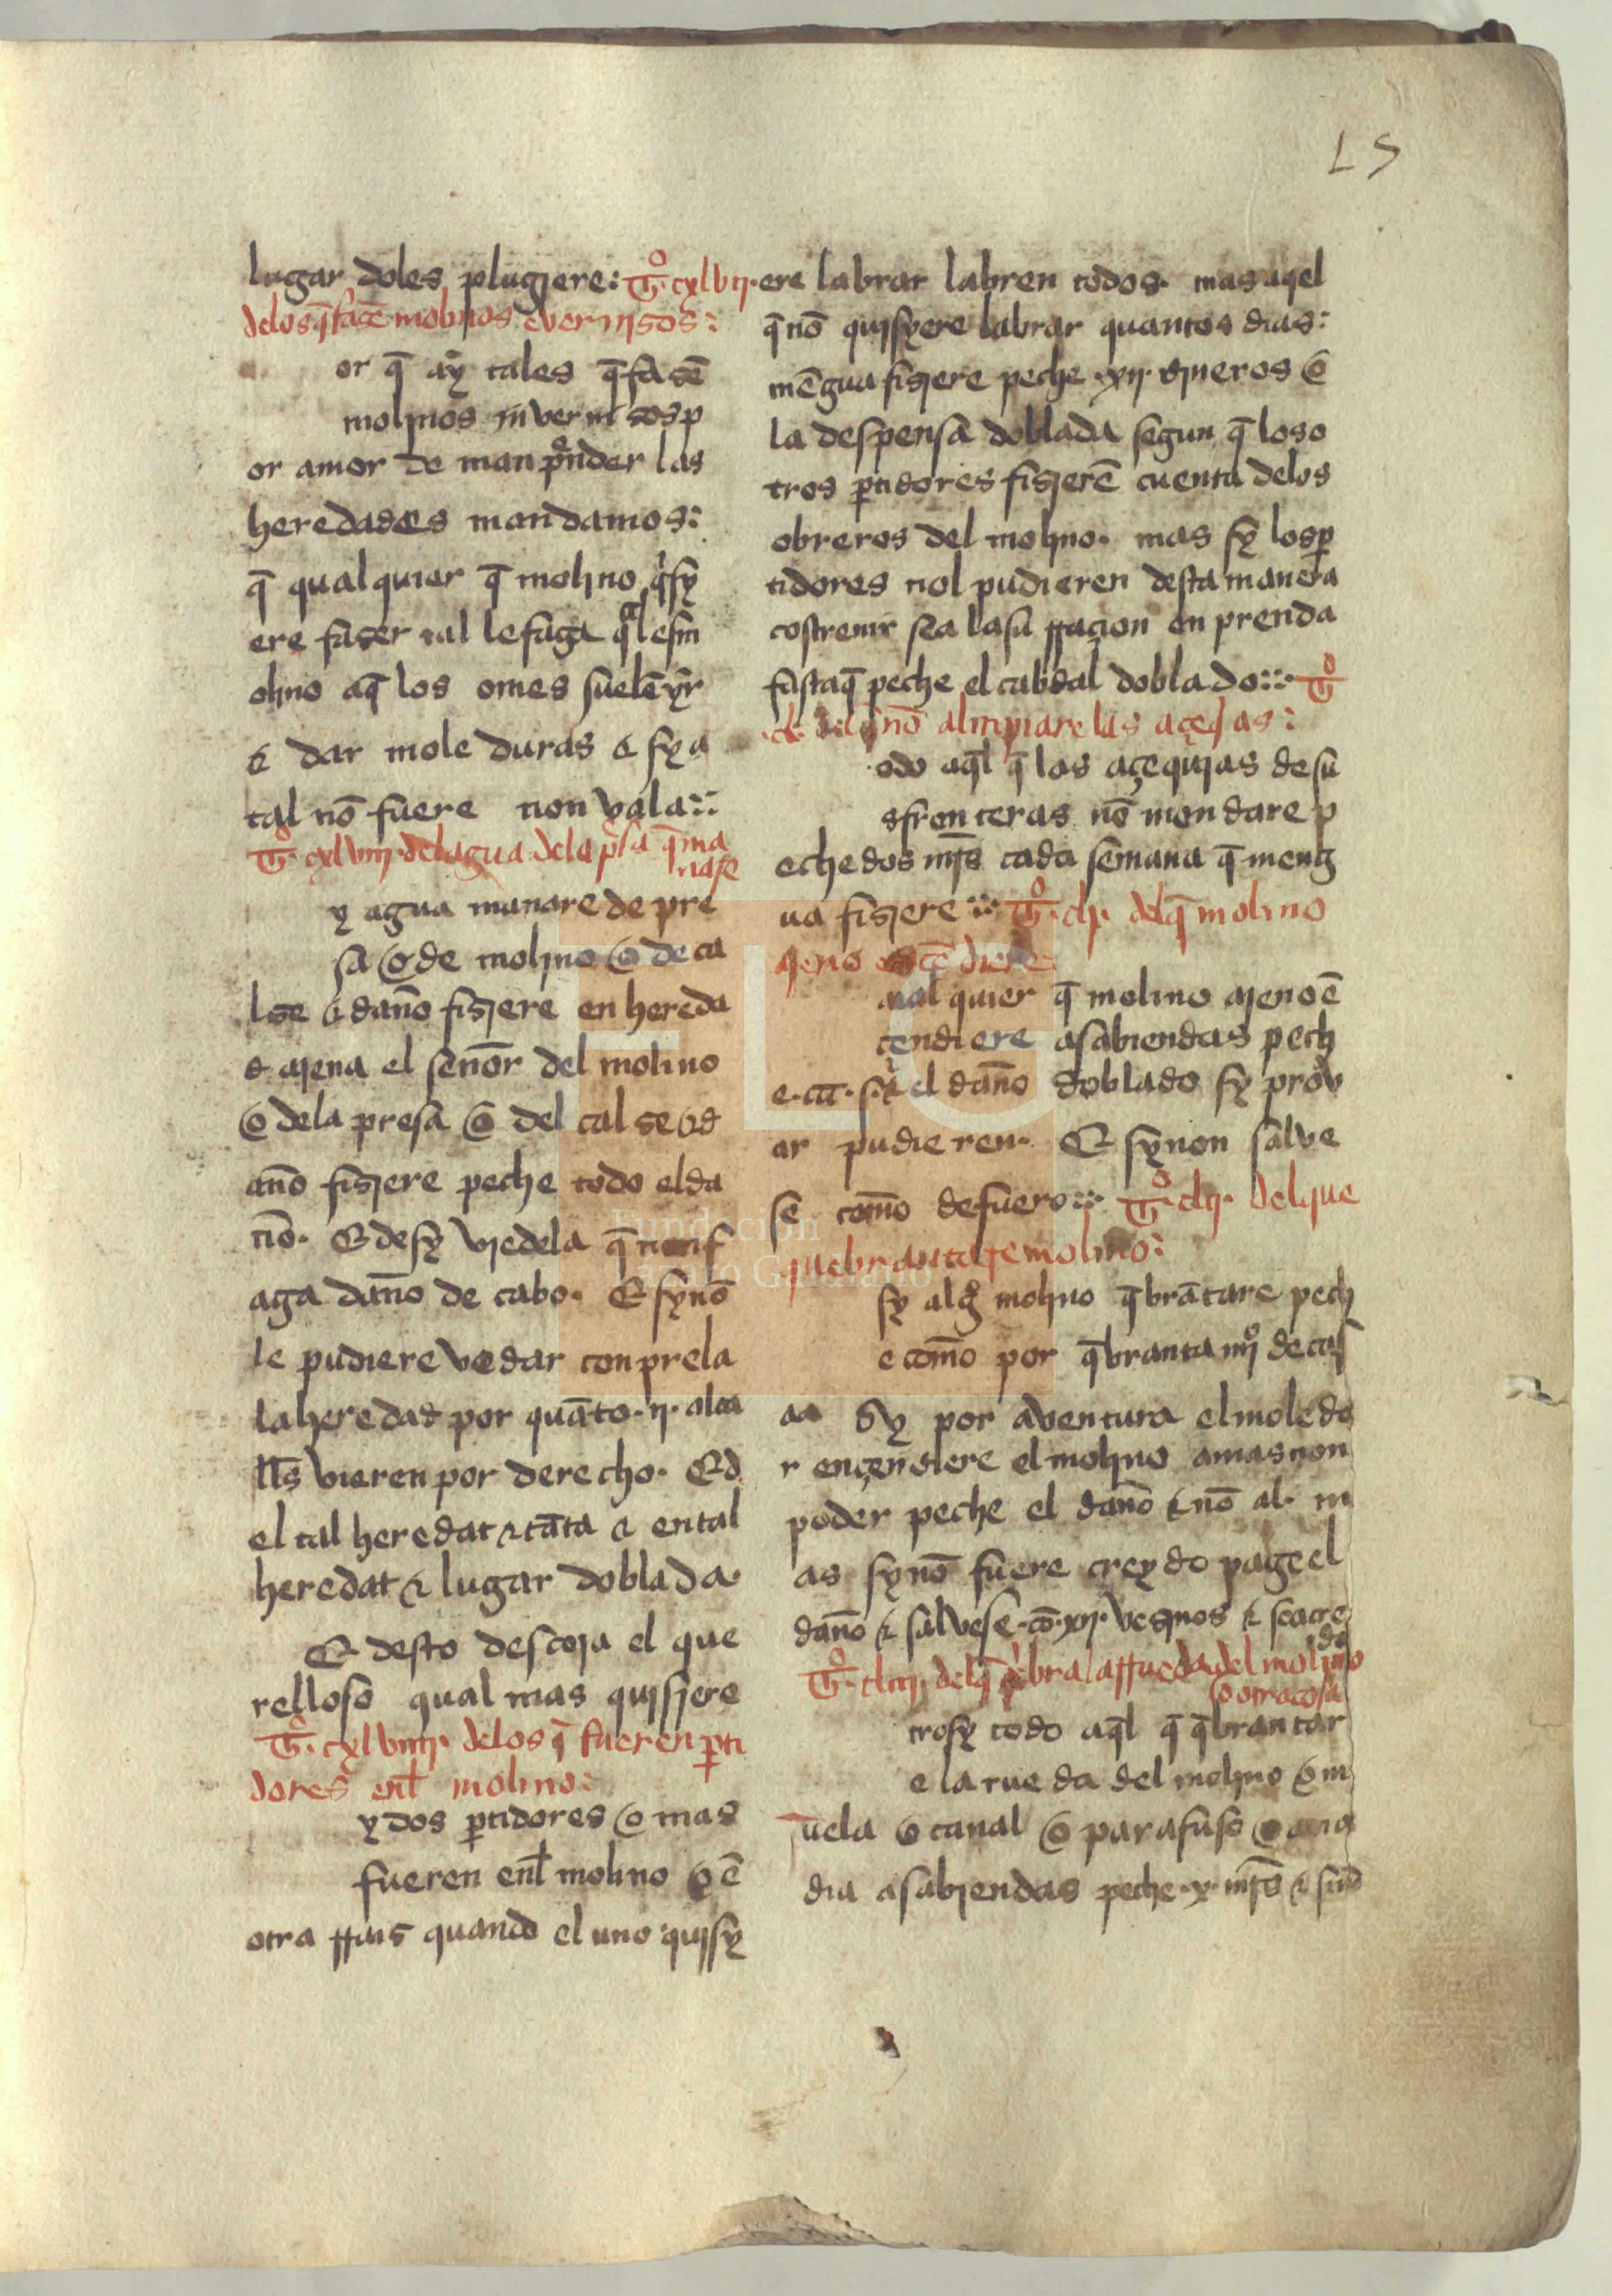 L S
lugar doles plugiere: T.º cxlvij.
delos q̃ fasẽ molinos evernisos:
or q̃ ay tales q̃ fasẽ
molinos invernisos p
or amor de manprender las
heredades mandamos:
q̃ qualquier q̃ molino q̇sy
ere faser tal le faga q̃l esm
olino aq̃ los omes suelẽ yr
& dar mole duras & sy a
tal nõ fuere non vala::
T.º cxlviij. del agua dela p̃sa q̃ ma
nare
y agua manare de pre
sa o de molino o de ca
lse & daño fisiere en hereda
d ajena el señor del molino
o dela presa o del calse o d
año fisiere peche todo el da
ño. E desy viedela q̃ non f
aga daño de cabo. E sy nõ
le pudiere vedar conprela
la heredad por quãto .ij. alca
lls vieren por derecho. E d
el tal heredat & tãta & en tal
heredat & lugar doblada.
E desto descoja el que
relloso qual mas quisiere
T.º cxlviiij. delos q̃ fueren p̱ti
dores enl̃ molino:
y dos p̱tidores o mas
fueren enl̃ molino o ẽ
otra rrais quando el uno quisy
ere labrar labren todos. mas aq̃el
q̃ nõ quisyere labrar quantos dias:
mẽgua fisiere peche .xij. dineros o
la despensa doblada segun q̃ los o
tros p̱tidores fisierẽ cuenta delos
obreros del molino. mas sy los p̱
tidores nol pudieren desta manera
costrenir sea la su rraçion en prenda
fasta q̃ peche el cabdal doblado:: T.º
.cl. del q̃ nõ alinpiare las açeq̃as:
odo aq̃l q̃ las açequias de su
s fronteras nõ mondare p
eche dos mr̃s cada semana q̃ meng
ua fisiere:: T.º .clj. del q̃ molino
ajeno ençẽdiere
ual quier q̃ molino ajeno ẽ
çendiere a sabiendas pech
e el daño doblado sy prov
ar pudieren. E sy non salve
se como de fuero:: T.º .clij. del que
quebrantare molino:
sy algũ molino q̃brãtare pech
e como por q̃brantamjº de cas
aa Sy por aventura el moledo
r ençendiere el molino a mas non
poder peche el daño & nõ al. m
as sy nõ fuere creydo page el
daño & salvese .cõ .xij. vesinos & sea cre
do
T.º .cliij. del q̃ q̃bra la rrueda del molino
o otra cosa
trosy todo aq̃l q̃ q̃brantar
e la rueda del molino o m
uela o canal o parafuso o
dia a sabiendas peche .x. mr̃s &
Fundación
Lázaro Galdiano